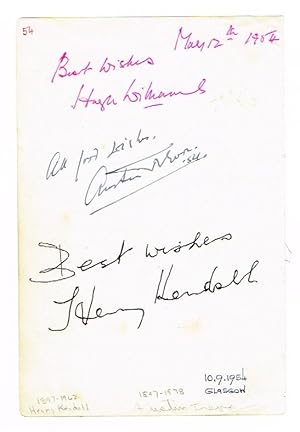 54
May 12th 1954
Best Wishes
Hugh Williams
All good wishes.
Austin Trevor
.54.
Best wishes
Henry Kendall
10.9.1954
GLASGOW
1897-1962
Henry Kendall
1897-1978
Austin Trevor